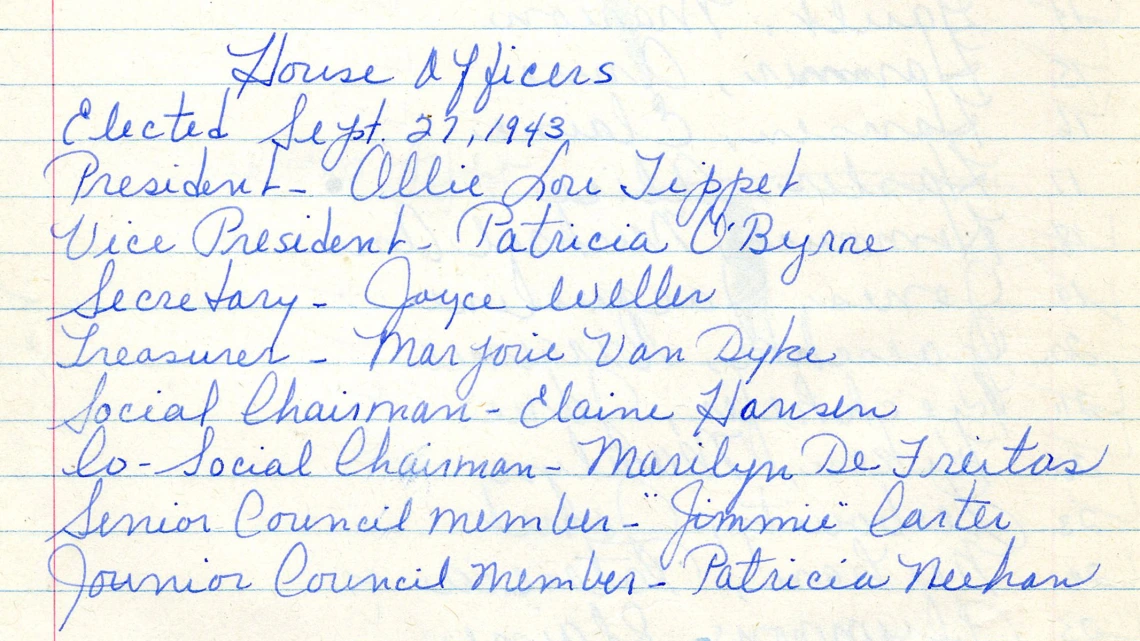 House Officers
Elected Sept. 27, 1943
President - Ollie Lou Tippet
Vice President - Patricia O'Byrne
Secretary - Joyce Weller
Treasurer - Marjorie Van Dyke
Social Chairman - Elaine Hansen
Co-Social Chairman - Marilyn De Freitas
Senior Council member - "Jimmie" Carter
Jounior Council member - Patricia Neehan